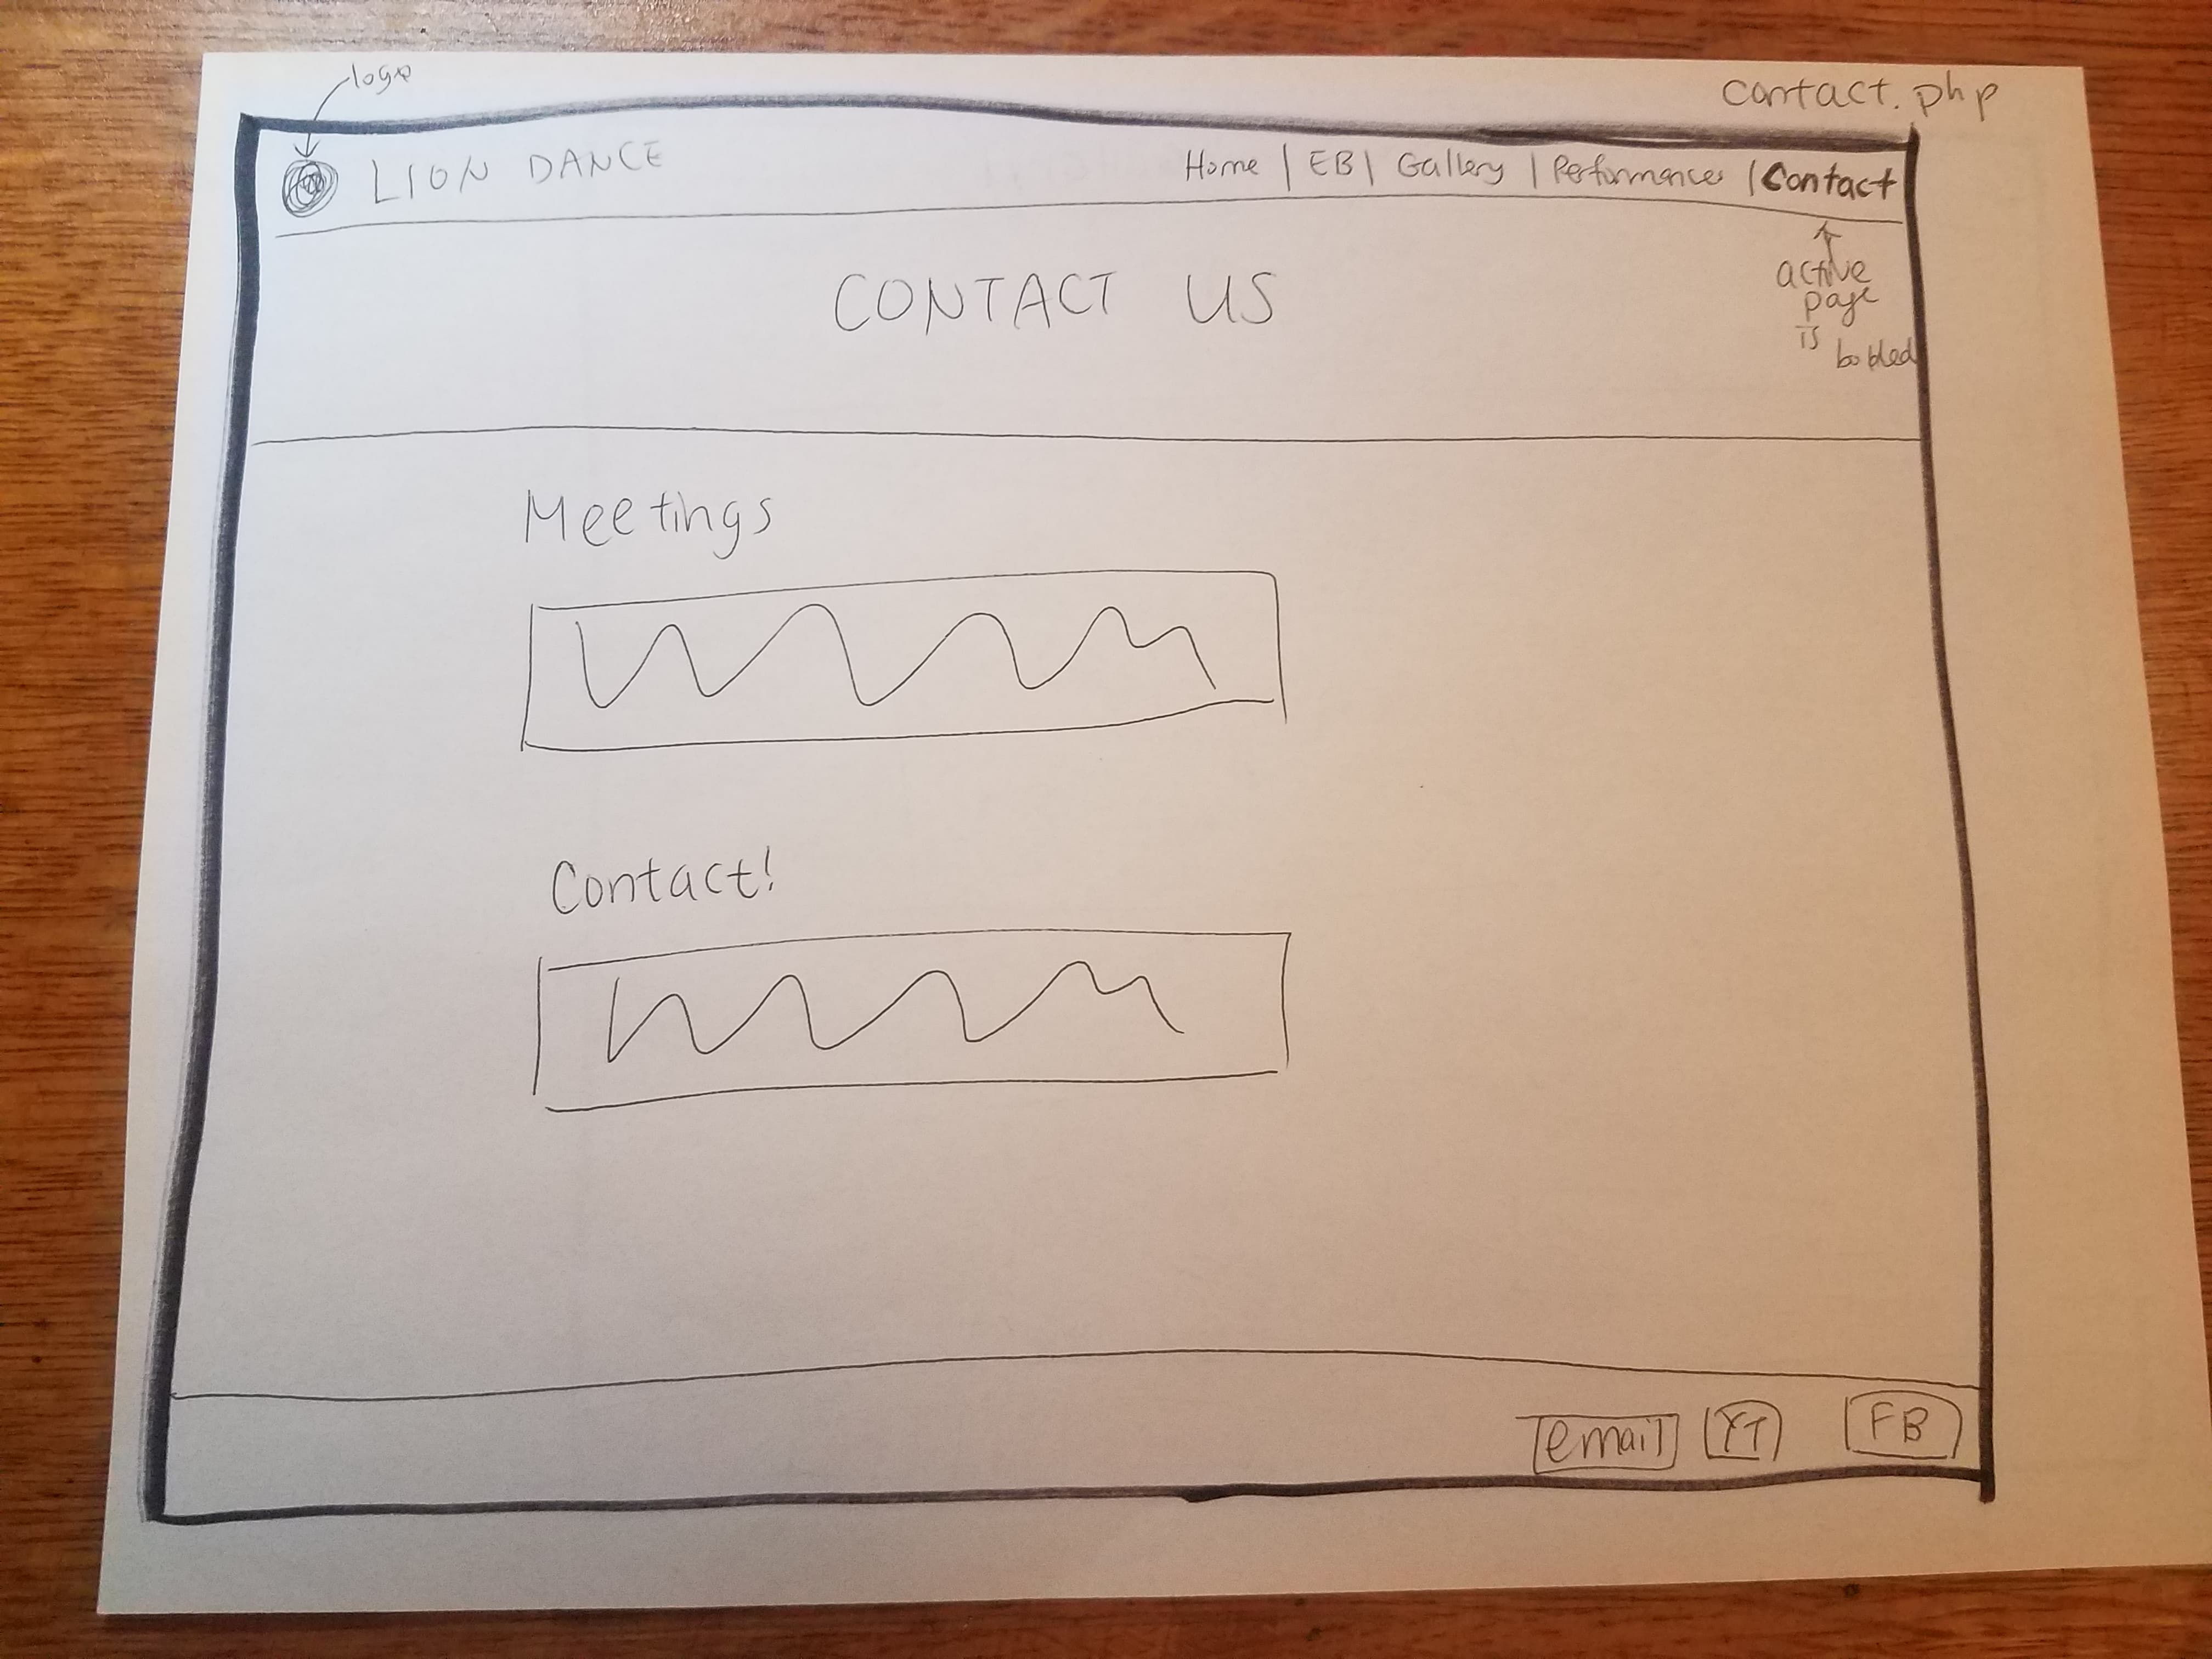 logo
contact.php
LION DANCE
Home | EB | Gallery | Performances | Contact
active
page
is
bolded
CONTACT US
Meetings
Contact!
email YT FB